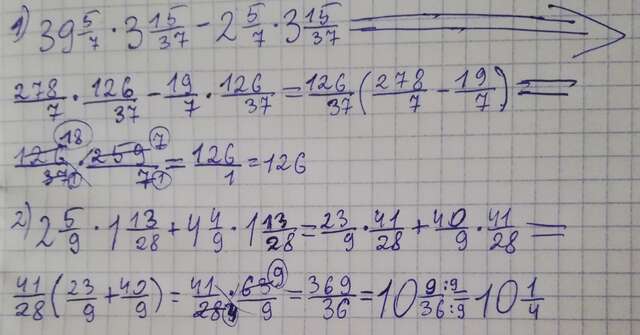 1) 39 5/7 · 3 15/37 − 2 5/7 · 3 15/37 =
278/7 · 126/37 − 19/7 · 126/37 = 126/37 (278/7 − 19/7) =
126 18/37 1 · 259 7/7 1 = 126/1 = 126
2) 2 5/9 · 1 13/28 + 4 4/9 · 1 13/28 = 23/9 · 41/28 + 40/9 · 41/28 =
41/28 (23/9 + 40/9) = 41/28 4 · 63 9/9 = 369/36 = 10 9:9/36:9 = 10 1/4